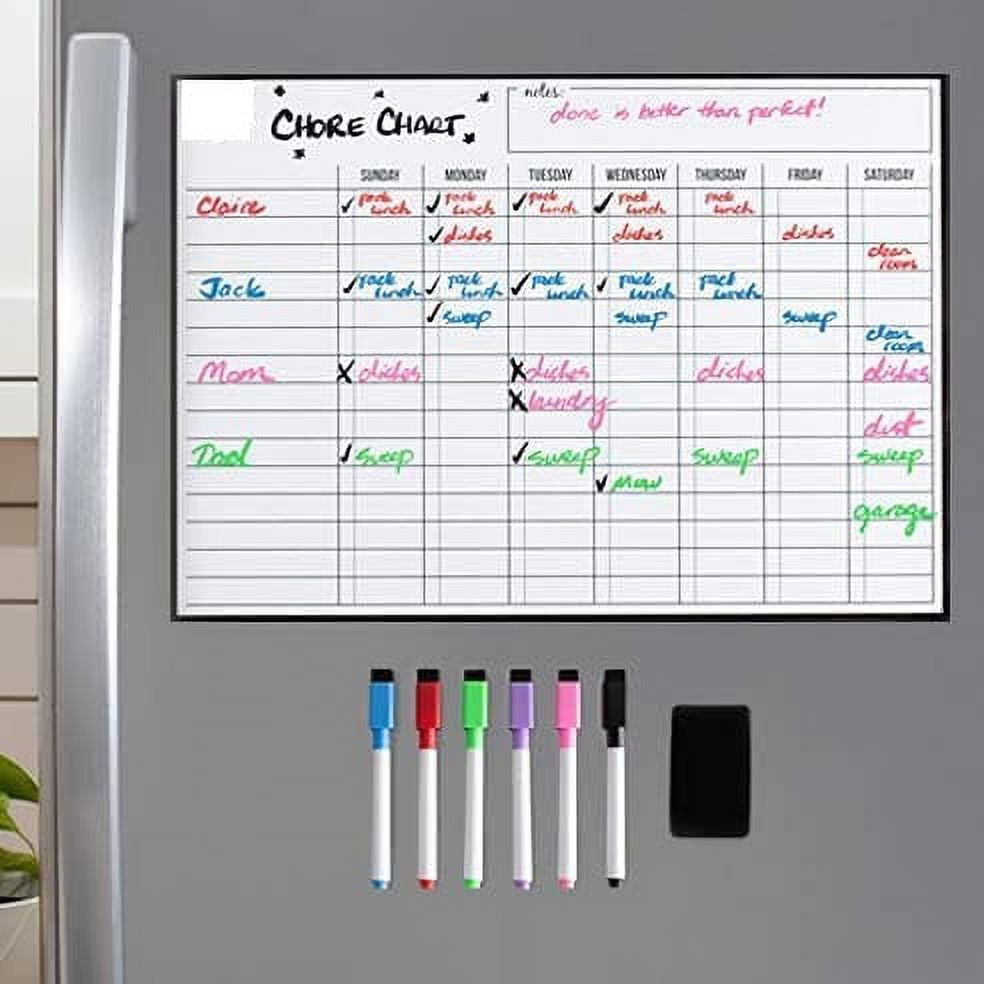 notes:
done is better than perfect!
CHORE CHART
SUNDAY MONDAY TUESDAY WEDNESDAY THURSDAY FRIDAY SATURDAY
Claire ✓ pack lunch ✓ pack lunch ✓ pack lunch ✓ pack lunch pack lunch
✓ dishes dishes dishes
clean room
Jack ✓ pack lunch ✓ pack lunch ✓ pack lunch ✓ pack lunch pack lunch
✓ sweep sweep sweep
clean room
Mom X dishes X dishes dishes dishes
X laundry
dust
Dad ✓ sweep ✓ sweep sweep sweep
✓ mow
garage